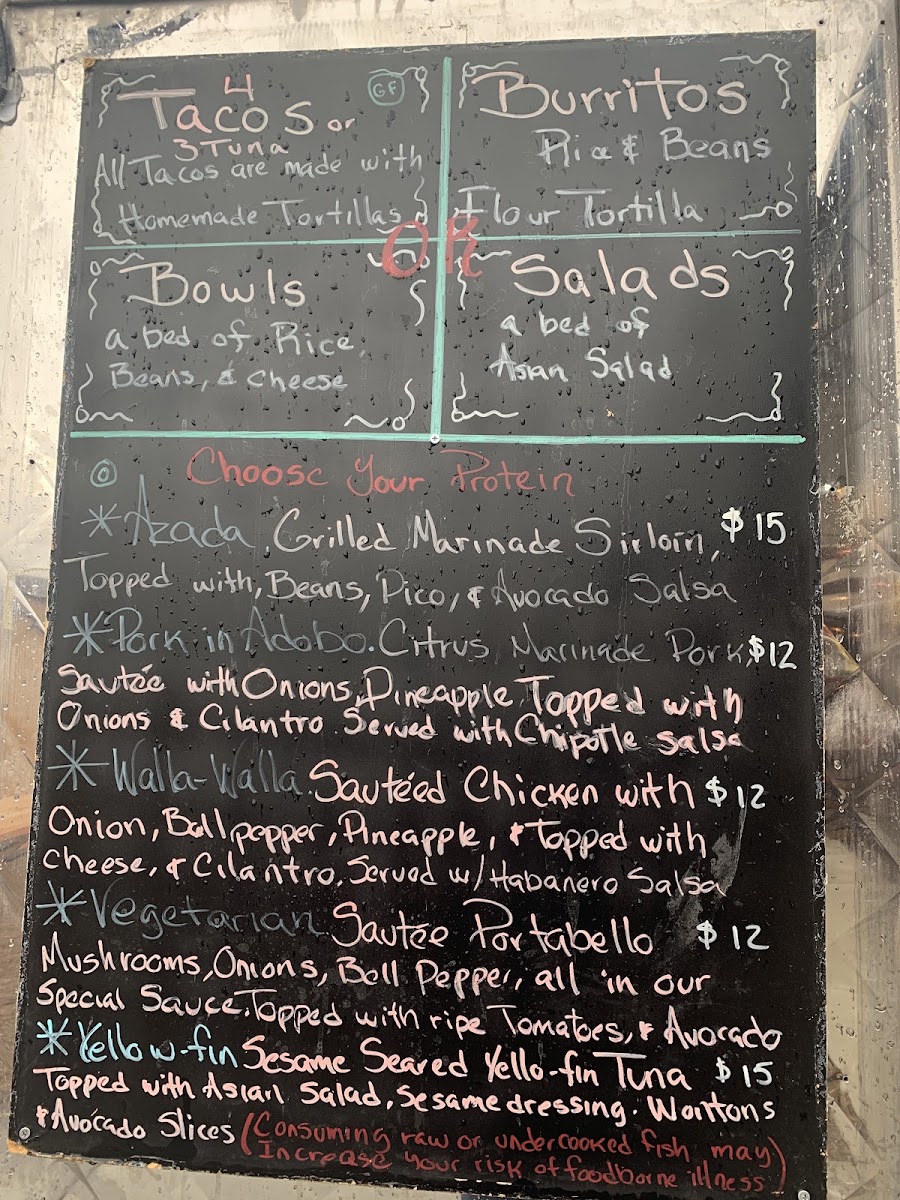 4
Tacos or GF
3 Tuna
All Tacos are made with
Homemade Tortillas
Burritos
Rice & Beans
Flour Tortilla
OR
Bowls
a bed of Rice,
Beans, & Cheese
Salads
a bed of
Asian Salad
Choose Your Protein
*Azada. Grilled Marinade Sirloin, $15
Topped with, Beans, Pico, & Avocado Salsa
*Pork in Adobo. Citrus Marinade Pork, $12
Sautée with Onions, Pineapple Topped with
Onions & Cilantro Served with Chipotle Salsa
*Walla-Walla. Sautéed Chicken with $12
Onion, Bell pepper, Pineapple, & Topped with
Cheese, & Cilantro. Served w/ Habanero Salsa
*Vegetarian Sautée Portabello $12
Mushrooms, Onions, Bell Pepper, all in our
Special Sauce. Topped with ripe Tomatoes, & Avocado
*Yellow-fin Sesame Seared Yello-fin Tuna $15
Topped with Asian Salad, Sesame dressing. Wontons
& Avocado Slices (Consuming raw or undercooked fish may
Increase your risk of foodborne illness)